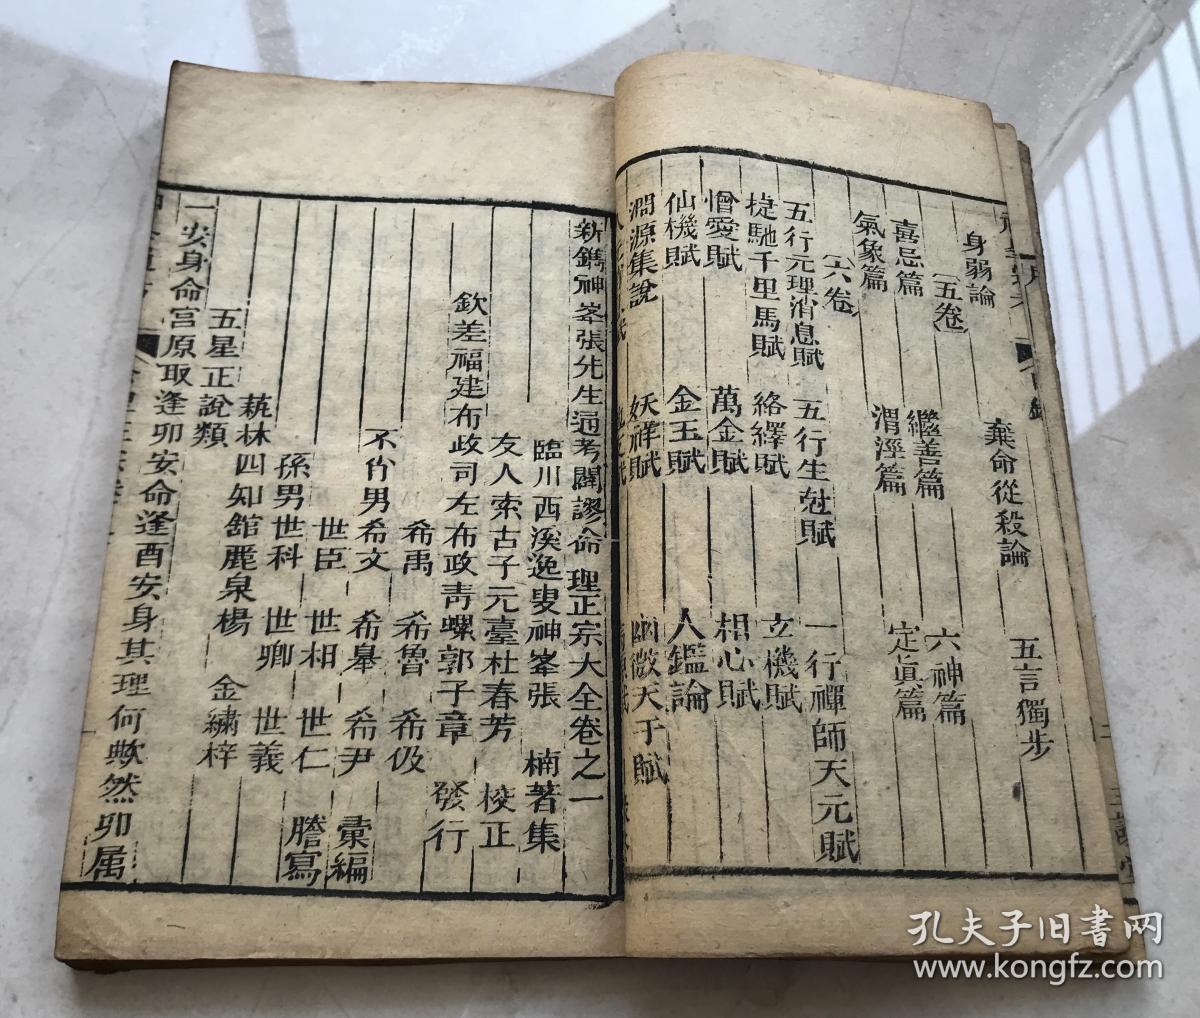 身弱論　棄命從殺論　五言獨步
（五卷）
喜忌篇　繼善篇　六神篇
氣象篇　渭涇篇　定眞篇
（六卷）
五行元理消息賦　五行生尅賦　一行禪師天元賦
捷馳千里馬賦　絡繹賦　玄機賦
憎愛賦　萬金賦　相心賦
仙機賦　金玉賦　人鑑論
淵源集說　妖祥賦　幽微天干賦
新鐫神峯張先生通考闢謬命理正宗大全卷之一
臨川西溪逸叟神峯張　楠著集
友人索古子元臺杜春芳　校正
欽差福建布政司左布政靑螺郭子章　發行
希禹　希魯　希伋
不肖男希文　希臯　希尹　彚編
世臣　世相　世仁
孫男世科　世卿　世義　謄寫
蓺林四知館麗泉楊　金繡梓
五星正說類
一安身命宮原取逢卯安命逢酉安身其理何歟然卯属
孔夫子旧书网
www.kongfz.com